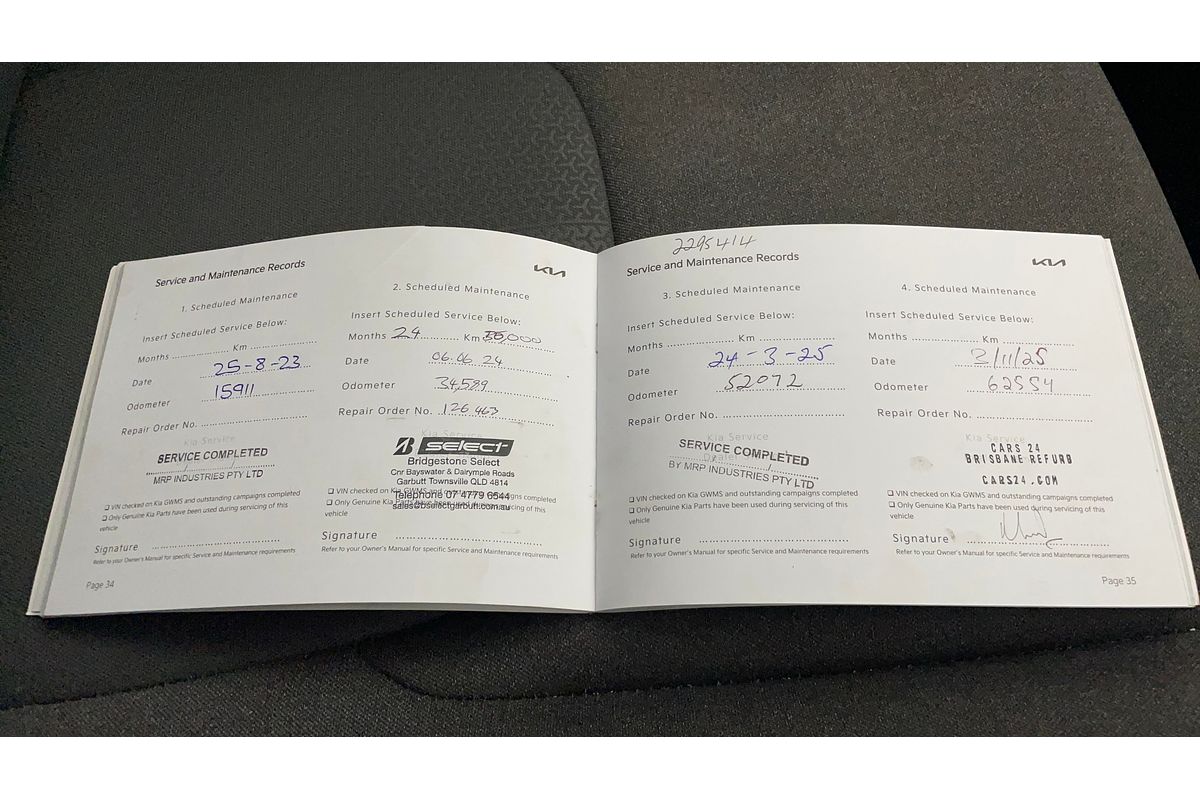 Service and Maintenance Records
KIA
1. Scheduled Maintenance
Insert Scheduled Service Below:
Months .................. Km ....................
Date 25-8-23
Odometer 15911
Repair Order No. ............................
Kia Service
SERVICE COMPLETED
MRP INDUSTRIES PTY LTD
❑ VIN checked on Kia GWMS and outstanding campaigns completed
❑ Only Genuine Kia Parts have been used during servicing of this
vehicle
Signature ....................................
Refer to your Owner's Manual for specific Service and Maintenance requirements
Page 34
2. Scheduled Maintenance
Insert Scheduled Service Below:
Months 24 Km 000
Date 06.06.24
Odometer 34,589
Repair Order No. 126463
Kia Service
select
Bridgestone Select
Cnr Bayswater & Dalrymple Roads
Garbutt Townsville QLD 4814
Telephone 07 4779 6544
sales@bselectgarbutt.com.au
❑ VIN checked on Kia GWMS and outstanding campaigns completed
❑ Only Genuine Kia Parts have been used during servicing of this
vehicle
Signature ....................................
Refer to your Owner's Manual for specific Service and Maintenance requirements
2295414
Service and Maintenance Records
KIA
3. Scheduled Maintenance
Insert Scheduled Service Below:
Months .................. Km ....................
Date 24-3-25
Odometer 52072
Repair Order No. ............................
Kia Service
Dealer
SERVICE COMPLETED
BY MRP INDUSTRIES PTY LTD
❑ VIN checked on Kia GWMS and outstanding campaigns completed
❑ Only Genuine Kia Parts have been used during servicing of this
vehicle
Signature ....................................
Refer to your Owner's Manual for specific Service and Maintenance requirements
4. Scheduled Maintenance
Insert Scheduled Service Below:
Months .................. Km ....................
Date 2/11/25
Odometer 62554
Repair Order No. ............................
Kia Service
CARS 24
BRISBANE REFURB
CARS24.COM
❑ VIN checked on Kia GWMS and outstanding campaigns completed
❑ Only Genuine Kia Parts have been used during servicing of this
vehicle
Signature ....................................
Refer to your Owner's Manual for specific Service and Maintenance requirements
Page 35